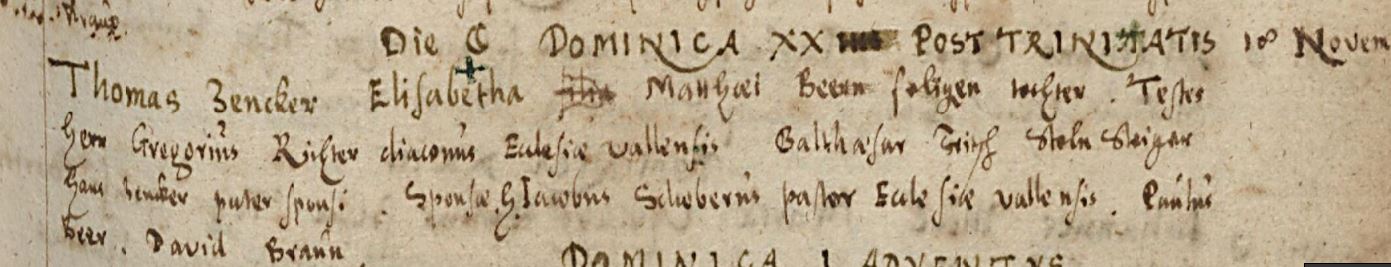 Die ☾ DOMINICA XX POST TRINITATIS 18 Novem
Thomas Zencker Elisabetha filia Matthæi Beern seligen tochter. Testes
Herr Gregorius Richter diaconus Ecclesiæ vallensis Balthasar Fritsch Stoln Steiger
Hans Zencker pater sponsi. Sponsæ. H Iacobus Schoberus pastor Ecclesiæ vallensis. Paulus
Beer. David Braun
DOMINICA I ADVENTUS